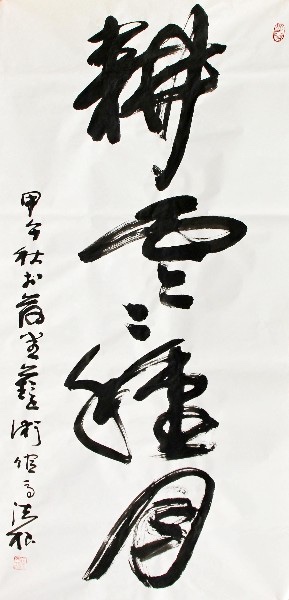 耕云種月
甲午秋於 藝術館 洪根